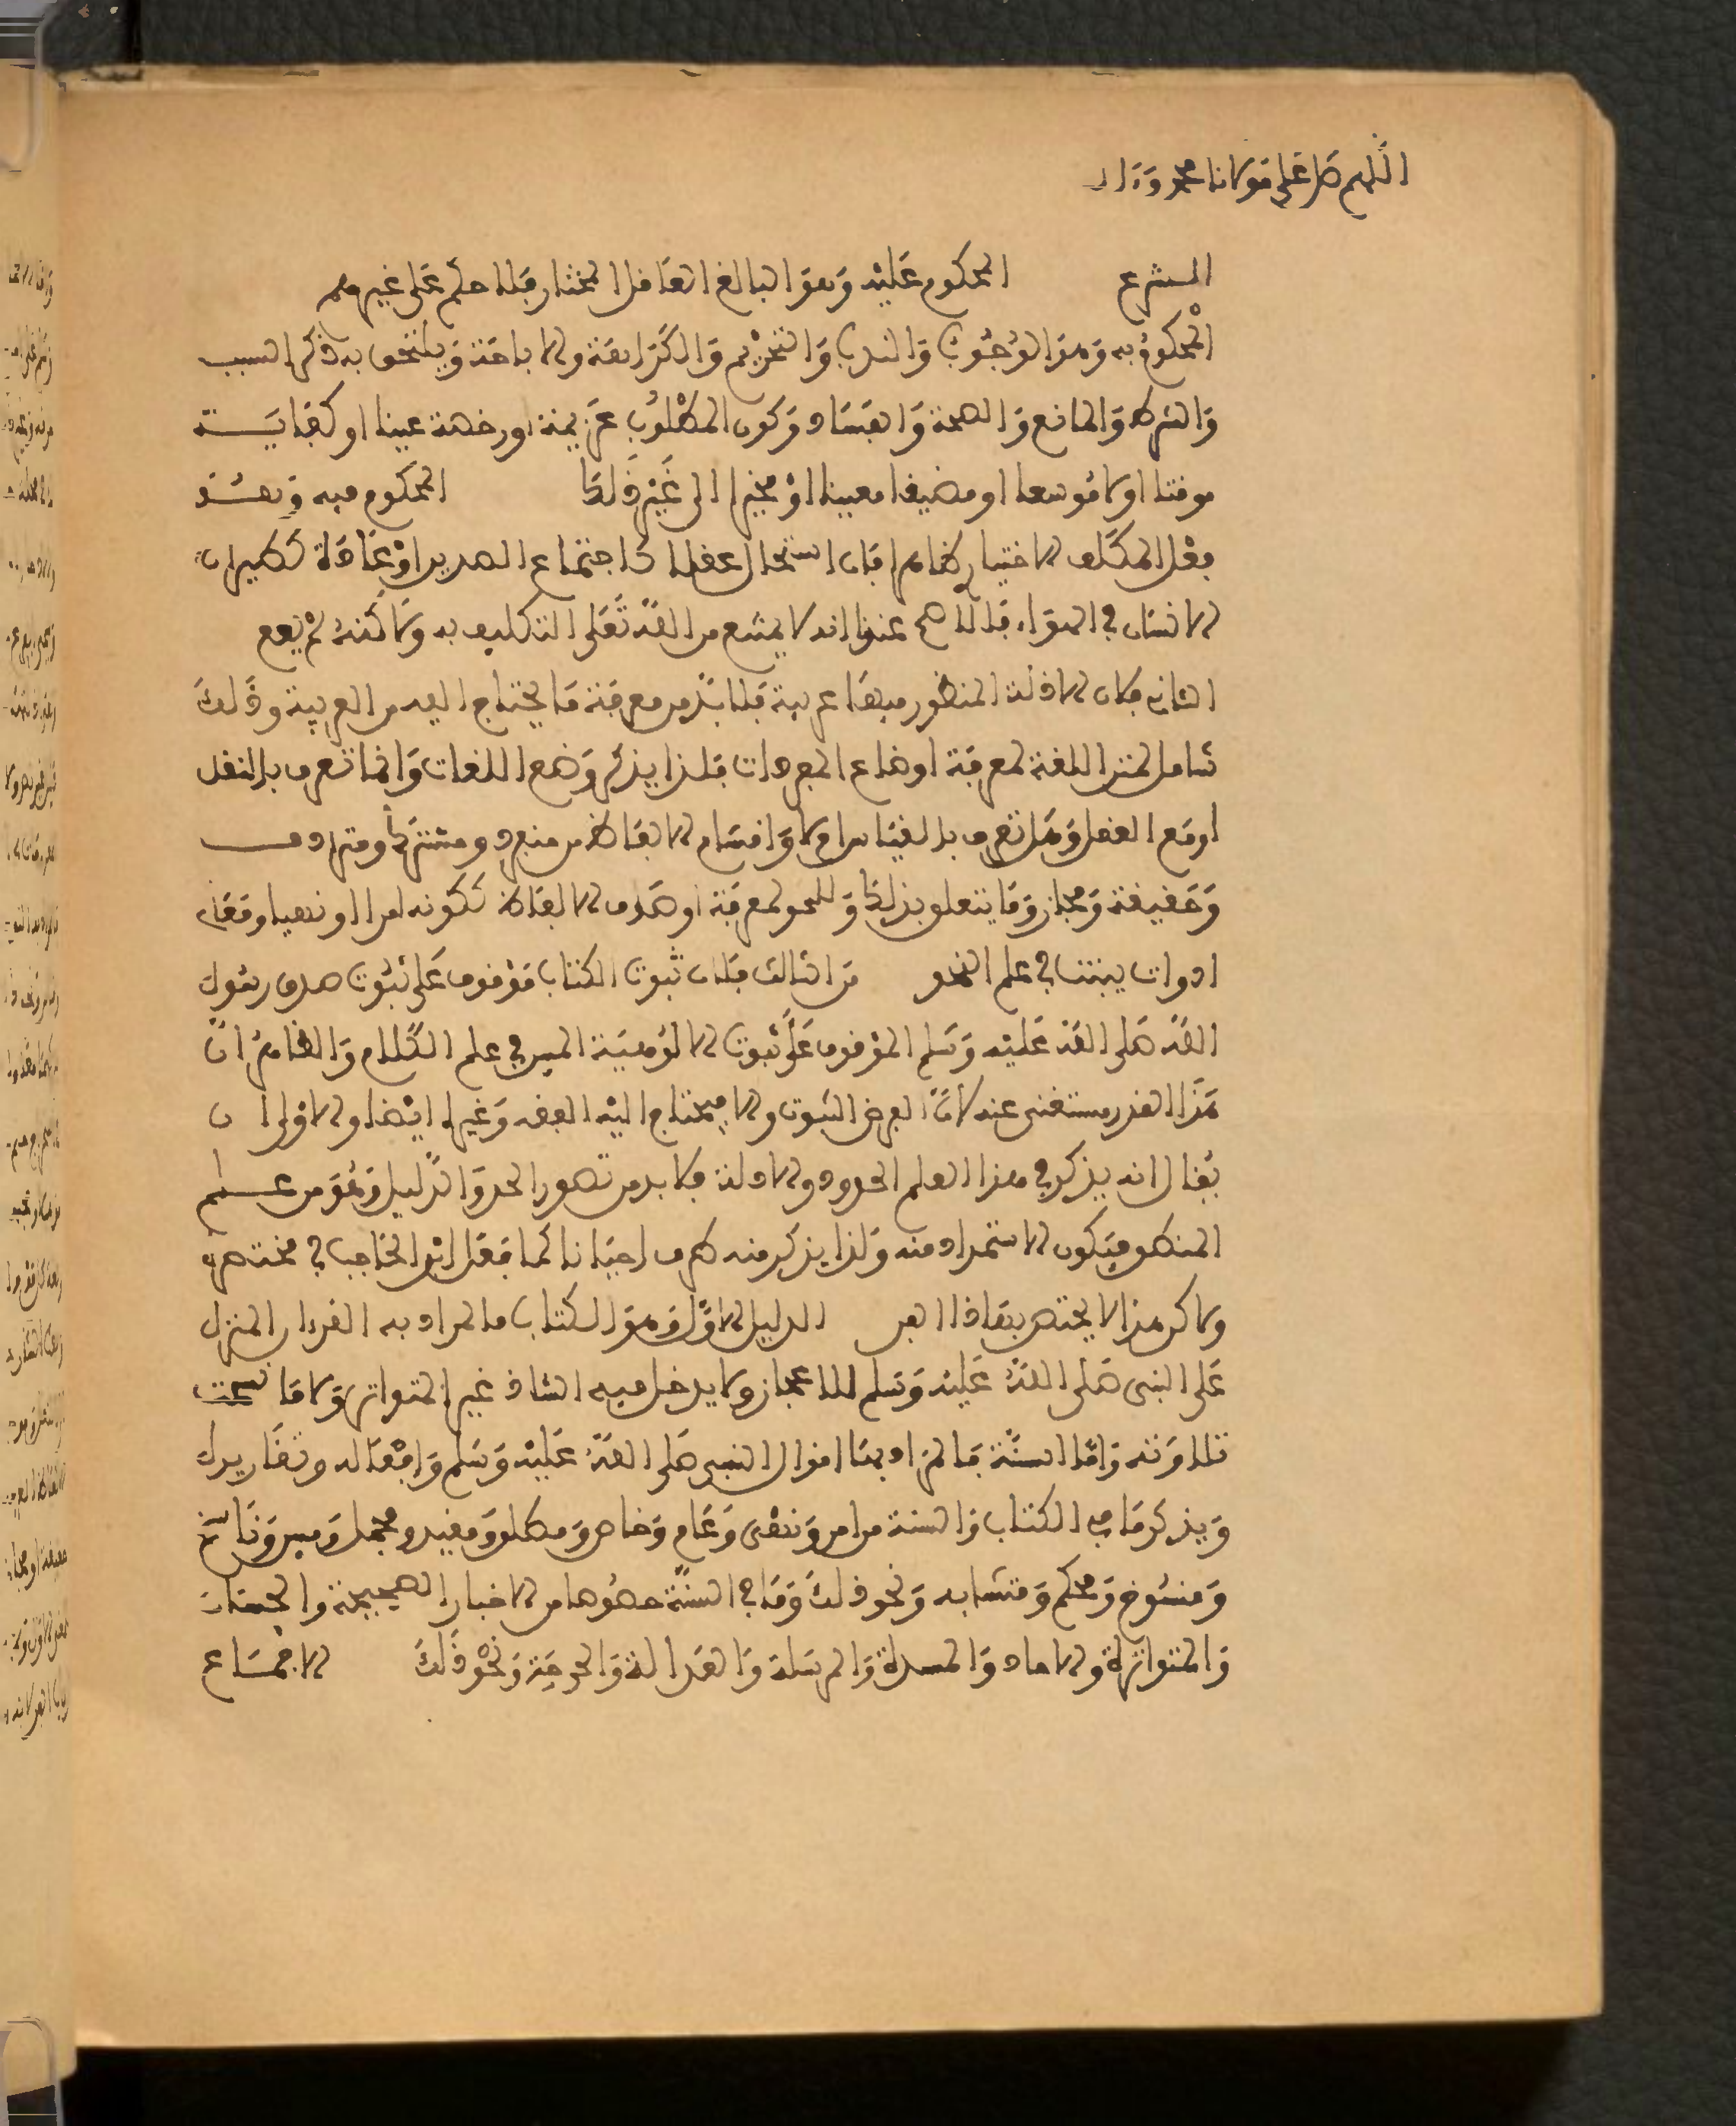 اللهم صل على مولانا محمد وءال
الشرع المحكوم عليه وهو البالغ العاقل المختار فلا حكم على غيرهم
المحكوم به وهو الوجوب والندب والتحريم والكراهة والاباحة ويلتحق به ذكر السبب
والشرط والمانع والصحة والفساد وكون المطلوب عزيمة او رخصة عينا او كفاية
موقتا اولا موسعا او مضيقا معينا او مخيرا الى غير ذلك المحكوم فيه وهو
فعل المكلف الاختيار ظاهرا فان استحال عقلا كاجتماع الضدين او عادة كطيران
الانسان في الهواء فالاصح عندنا انه لا يمتنع من الله تعلى التكليف به ولاكنه لم يقع
الثاني فلان الادلة المنظور فيها عربية فلا بد من معرفة ما يحتاج اليه من العربية وذلك
شامل لمتن اللغة لمعرفة اوضاع المفردات فلذا يذكر وضع اللغات وانما تعرف بالنقل
او مع العقل وهل تعرف بالقياس ام لا واقسام الالفاظ من منفرد ومشترك ومترادف
وحقيقة ومجاز وما يتعلق بذلك وللنحو لمعرفة اوصاف الالفاظ ككونه امرا او نهيا ومعاني
ادوات يبينت في علم النحو من الثالث فلان ثبوت الكتاب موقوف على ثبوت صدق رسول
الله صلى الله عليه وسلم الموقوف على ثبوت الالوهية المبين في علم الكلام والظاهر ان
هذا القدر مستغنى عنه لان الفرض الثبوت والا فيحتاج اليه الفقه وغيره ايضا والاولى ان
يقال انه يذكر في هذا العلم الحدود والادلة فلا بد من تصور الحد والدليل وهو من علم
المنطق فيكون الاستمداد منه ولذا يذكر منه طرف احيانا كما فعل ابن الحاجب في مختصره
ولاكن هذا لا يختص بهاذا الفن الدليل الاول وهو الكتاب فالمراد به القرءان المنزل
على النبي صلى الله عليه وسلم للاعجاز ولا يدخل فيه الشاذ غير المتواتر ولا ما نسخت
تلاوته واما السنة فالمراد بها اقوال النبي صلى الله عليه وسلم وافعاله وتقاريره
ويذكر ما في الكتاب والسنة من امر ونهي وعام وخاص ومطلق ومقيد ومجمل ومبين وناسخ
ومنسوخ ومحكم ومتشابه ونحو ذلك وما في السنة خصوصا من الاخبار الصحيحة والحسان
والمتواترة والاحاد والمسندة والمرسلة والعدالة والجرحة ونحو ذلك الاجماع